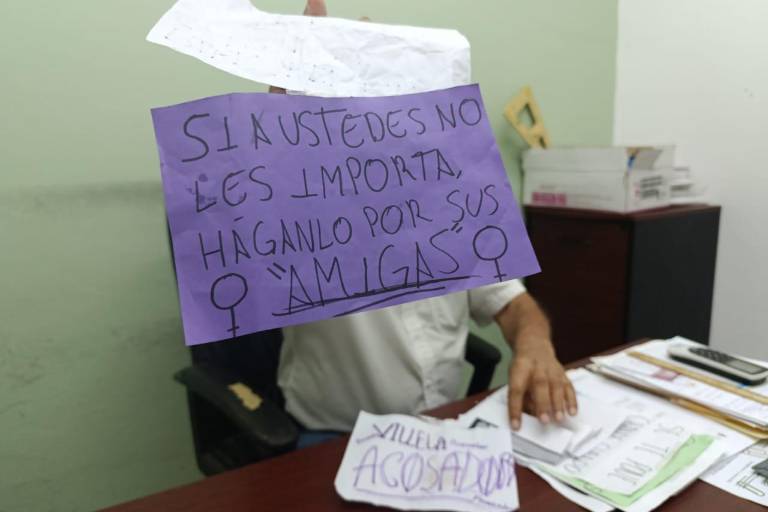 SI A USTEDES NO
LES IMPORTA,
HÁGANLO POR SUS
"AMIGAS"
VILLELA
ACOSADOR
SI TE DIJE